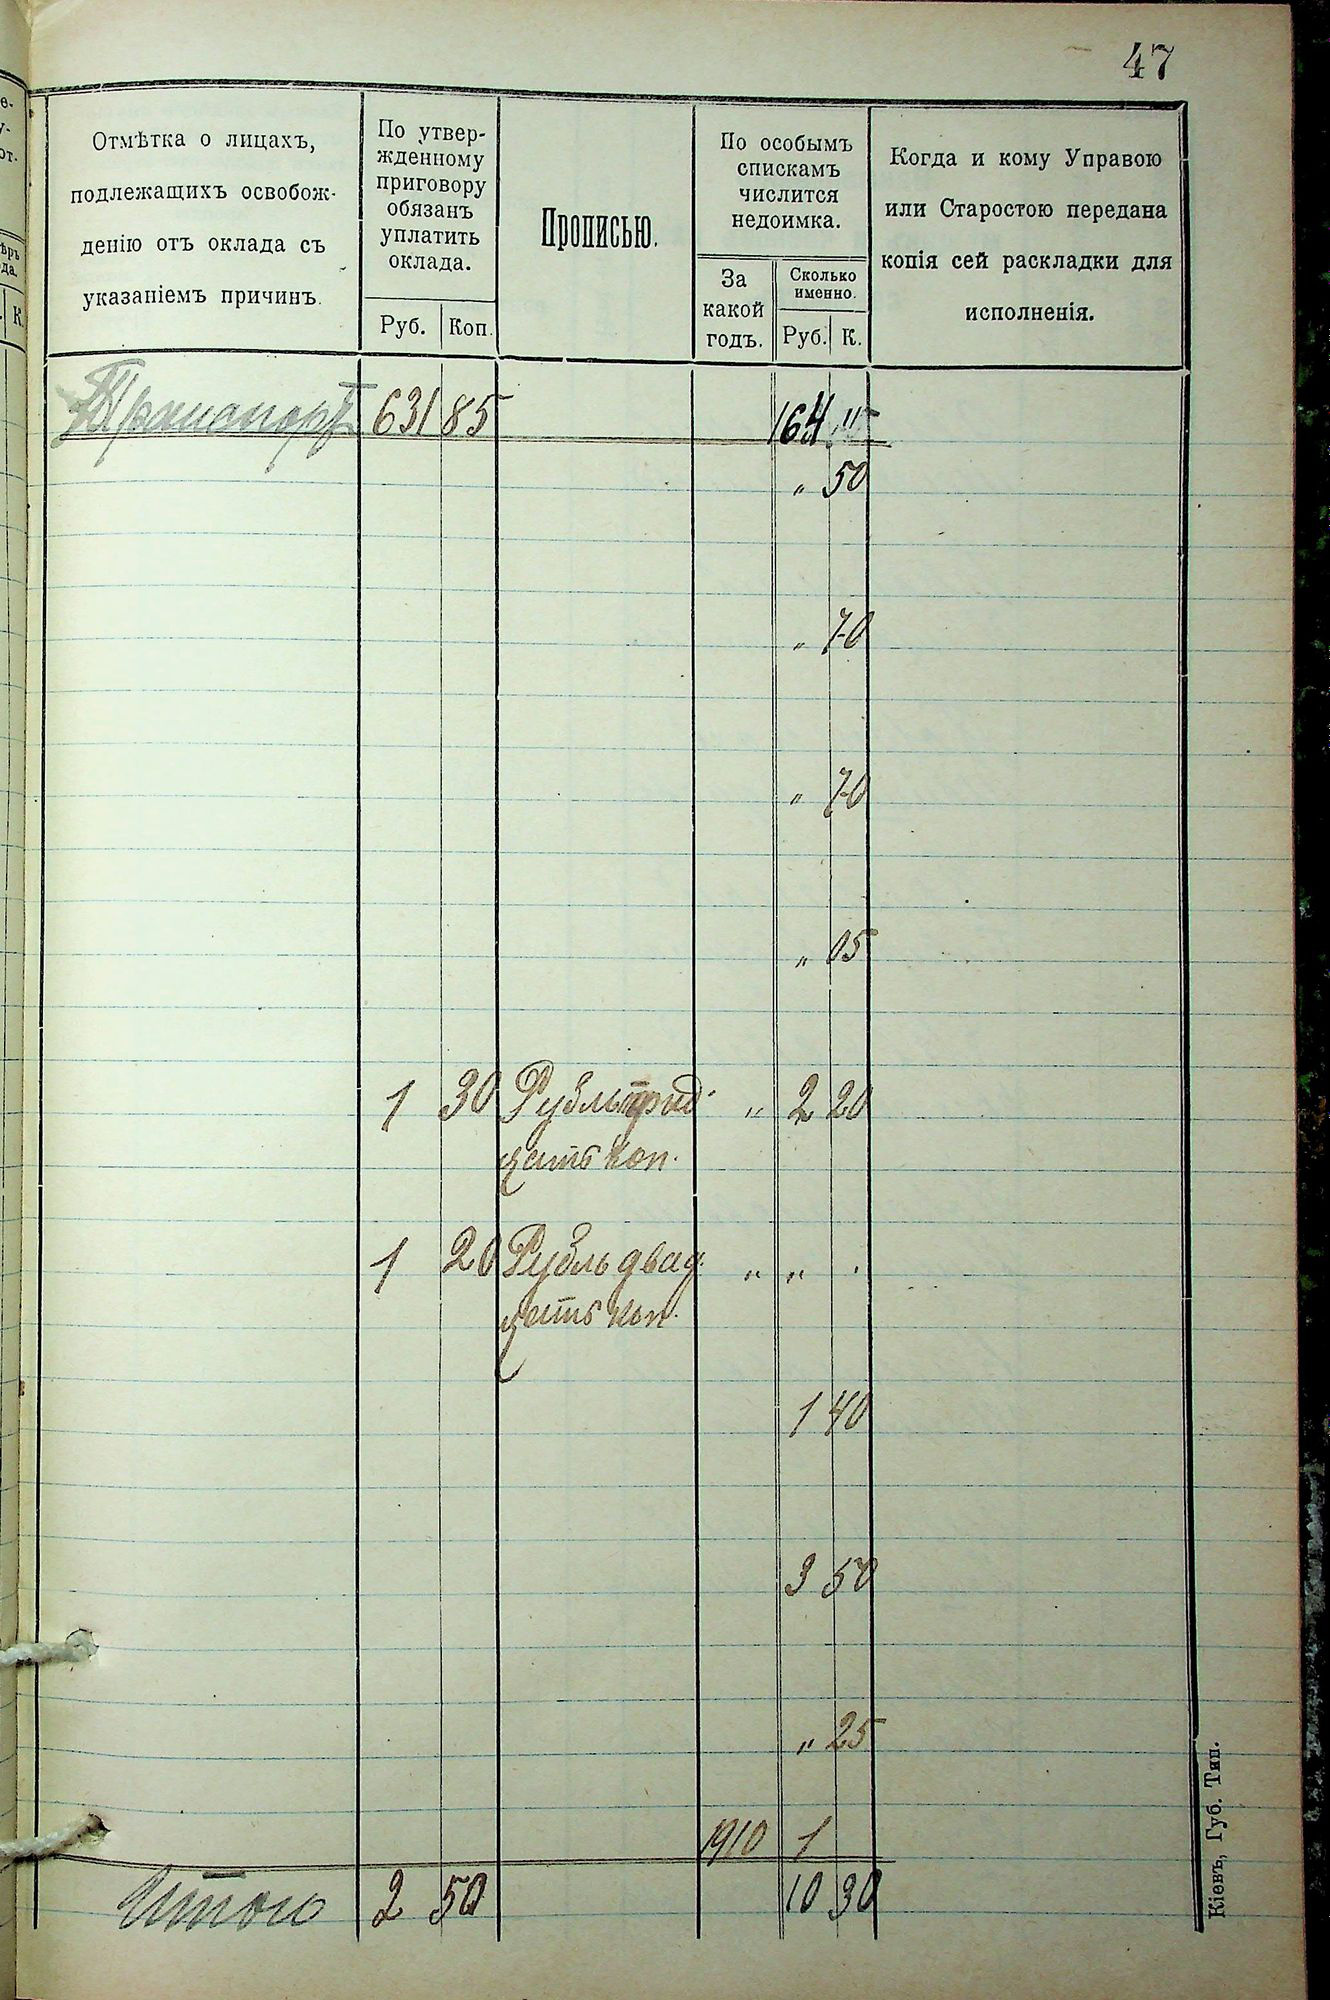 47
Отмѣтка о лицахъ,
подлежащихъ освобож-
денію отъ оклада съ
указаніемъ причинъ.
По утвер-
жденному
приговору
обязанъ
уплатить
оклада.
Руб. Коп.
Прописью.
По особымъ
спискамъ
числится
недоимка.
За
какой
годъ.
Сколько
именно.
Руб. К.
Когда и кому Управою
или Старостою передана
копія сей раскладки для
исполненія.
Транспортъ 631 85 164
" 50
" 70
" 70
" 05
1 30 Рубль трид- " 2 20
цать коп.
1 20 Рубль двад- " "
цать коп.
1 40
3 50
" 25
1910 1
Итого 2 50 10 30
Кіевъ, Губ. Тип.